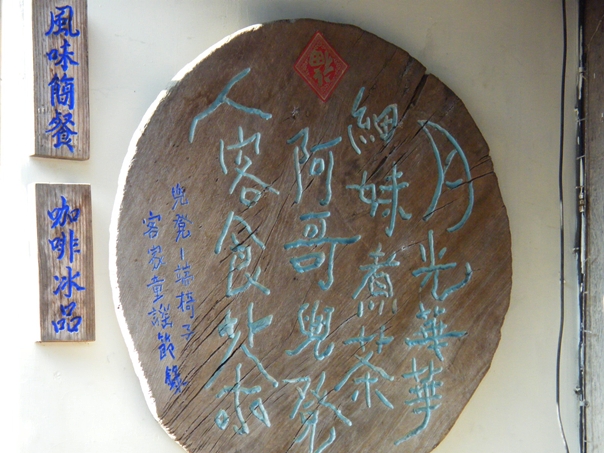 福
月光華華
細妹煮茶
阿哥兜凳
人客食
兜凳-端椅子
客家童謠節錄
風味簡餐
咖啡冰品